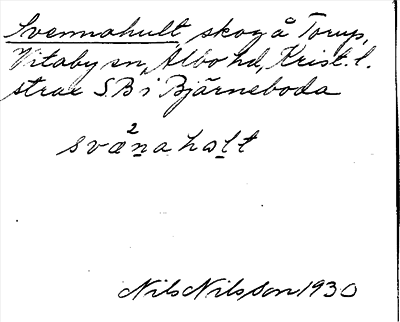 Svennahult skog å Torup,
Vitaby sn, Albo hd, Krist. l.
strax S.B i Bjärneboda
2
svænahalt
Nils Nilsson 1930